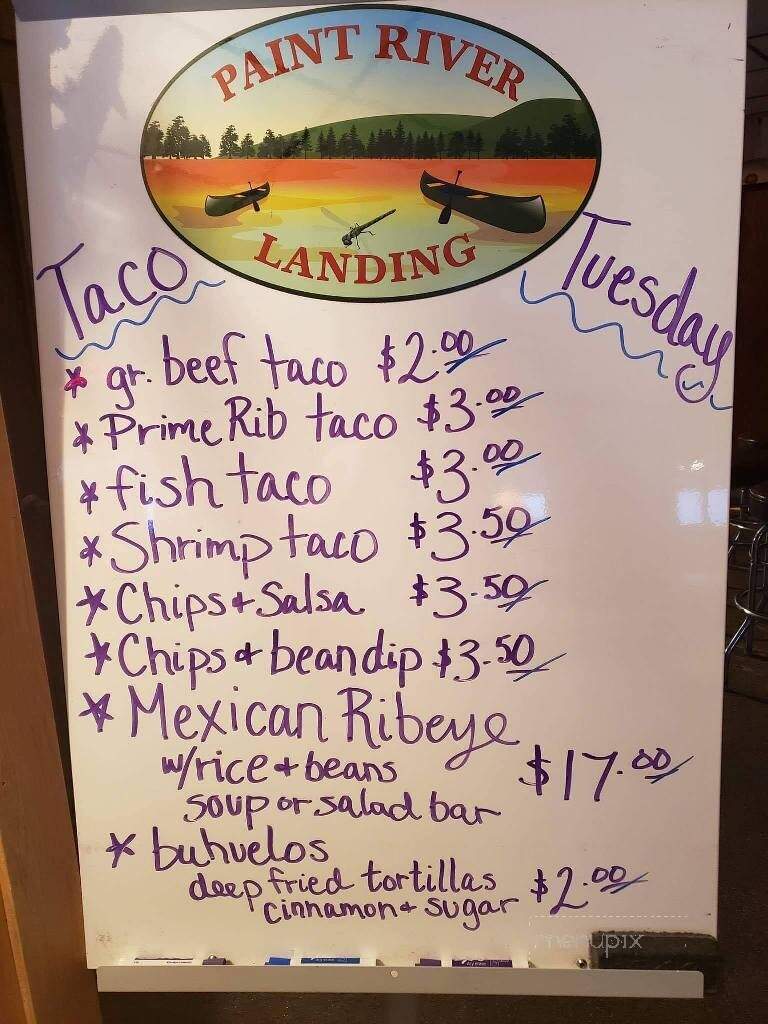 PAINT RIVER
LANDING
Taco Tuesday
* gr. beef taco $2.00
* Prime Rib taco $3.00
* fish taco $3.00
* Shrimp taco $3.50
* Chips + Salsa $3.50
* Chips + bean dip $3.50
* Mexican Ribeye
w/rice + beans $17.00
soup or salad bar
* buhuelos
deep fried tortillas $2.00
cinnamon + sugar
menupix